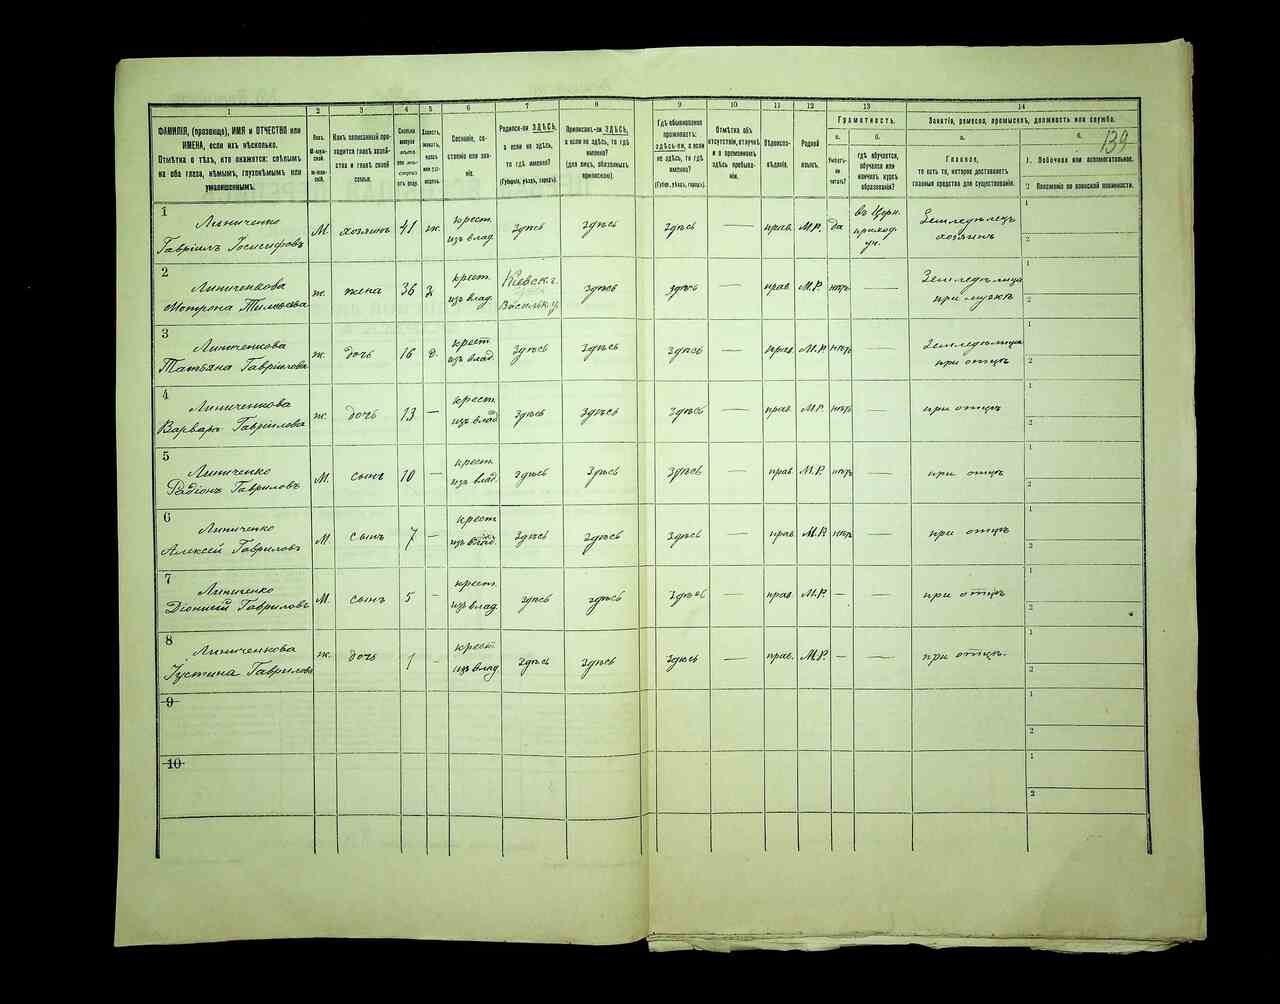 139
1 2 3 4 5 6 7 8 9 10 11 12 13 14
ФАМИЛІЯ, (прозвище), ИМЯ и ОТЧЕСТВО или
ИМЕНА, если ихъ нѣсколько.
Отмѣтка о тѣхъ, кто окажется: слѣпымъ
на оба глаза, нѣмымъ, глухонѣмымъ или
умалишеннымъ.
Полъ.
М-мужской.
Ж-женскій.
Какъ записанный приходится
главѣ хозяйства
и главѣ своей
семьи.
Сколько
минуло
лѣтъ
или мѣсяцевъ
отъ роду.
Холостъ,
женатъ,
вдовъ
или разведенъ.
Сословіе, состояніе
или званіе.
Родился-ли ЗДѢСЬ,
а если не здѣсь,
то гдѣ именно?
(Губернія, уѣздъ, городъ).
Приписанъ-ли ЗДѢСЬ,
а если не здѣсь, то гдѣ
именно?
(для лицъ, обязанныхъ
припискою).
Гдѣ обыкновенно
проживаетъ:
здѣсь-ли, а если
не здѣсь, то гдѣ
именно?
(Губерн., уѣздъ, городъ).
Отмѣтка объ
отсутствіи, отлучкѣ
и о временномъ
здѣсь пребываніи.
Вѣроисповѣданіе.
Родной
языкъ.
Грамотность.
а.
Умѣетъ-ли
читать?
б.
гдѣ обучается,
обучался или
кончилъ курсъ
образованія?
Занятіе, ремесло, промыселъ, должность или служба.
а.
Главное,
то есть то, которое доставляетъ
главныя средства для существованія.
б.
1. Побочное или вспомогательное.
2 Положеніе по воинской повинности.
1 Линиченко
Гавріилъ Іосифовъ М. хозяинъ 41 ж. крест. изъ влад. здѣсь здѣсь здѣсь — прав. М.Р. да въ Церк. приход. уч. Земледѣлецъ хозяинъ 1 2
2 Линиченкова
Мотрона ж. жена 36 з. крест. изъ влад. Кіевск. г. Васильк. у. здѣсь здѣсь — прав. М.Р. нѣтъ — Земледѣлица при мужѣ 1 2
3 Линиченкова
Татьяна Гаврилова ж. дочь 16 д. крест. изъ влад. здѣсь здѣсь здѣсь — прав. М.Р. нѣтъ — Земледѣлица при отцѣ 1 2
4 Линиченкова
Варвара Гаврилова ж. дочь 13 — крест. изъ влад. здѣсь здѣсь здѣсь — прав. М.Р. нѣтъ — при отцѣ 1 2
5 Линиченко
Радіонъ Гавриловъ М. сынъ 10 — крест. изъ влад. здѣсь здѣсь здѣсь — прав. М.Р. нѣтъ — при отцѣ 1 2
6 Линиченко
Алексѣй Гавриловъ М. сынъ 7 — крест. изъ влад. здѣсь здѣсь здѣсь — прав. М.Р. нѣтъ — при отцѣ 1 2
7 Линиченко
Діонисій Гавриловъ М. сынъ 5 — крест. изъ влад. здѣсь здѣсь здѣсь — прав. М.Р. — — при отцѣ 1 2
8 Линиченкова
Іустина Гаврилова ж. дочь 1 — крест. изъ влад. здѣсь здѣсь здѣсь — прав. М.Р. — — при отцѣ. 1 2
9 1 2
10 1 2